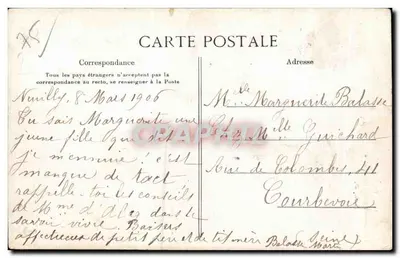 75
CARTE POSTALE
Correspondance
Tous les pays étrangers n'acceptent pas la
correspondance au recto, se renseigner à la Poste
Adresse
Neuilly 8 Mars 1906
Tu sais Marguerite une
jeune fille qui dit
je m'ennuie c'est
manque de tact
rappelle-toi les conseils
de Mme d' dans le
savoir vivre. Baisers
affectueux de petit père et de tit mère
Mlle Marguerite Balasse
Mlle Guichard
Rue de Colombes, 41
Courbevoie
Seine